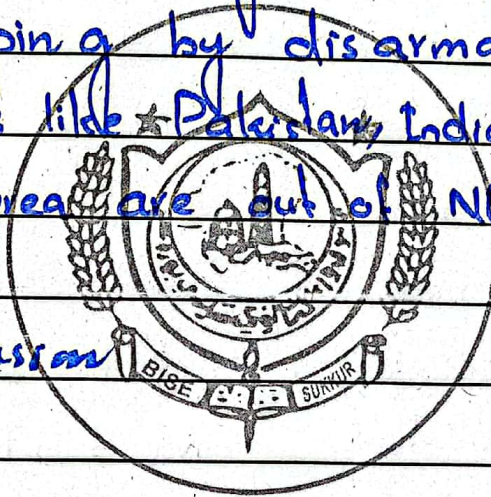 oing by disarma
s like Pakistan, India
orea are out of N
ussion
BISE SUKKUR